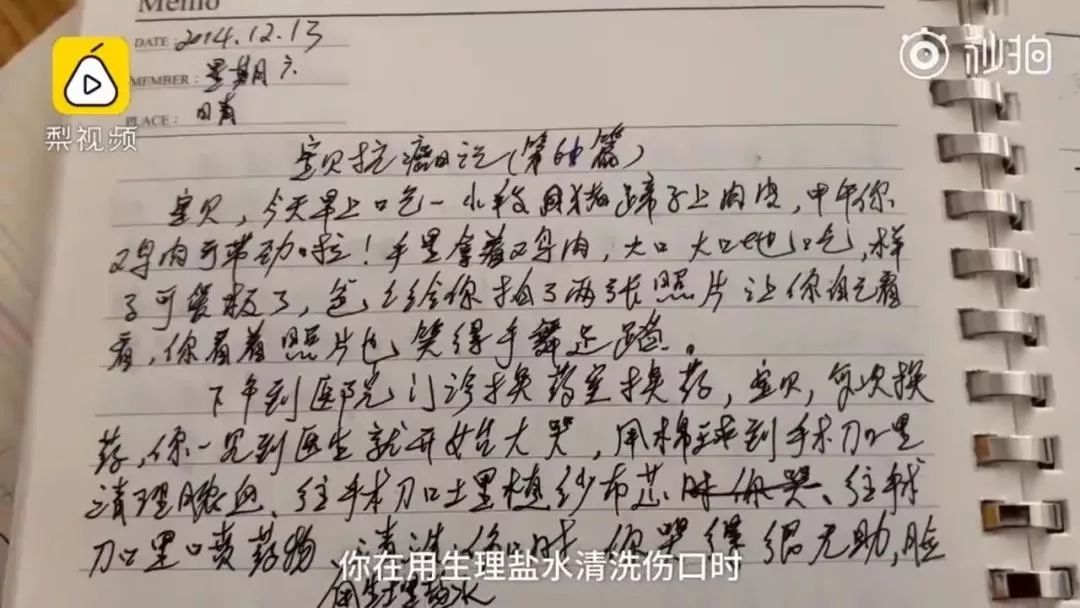 Memo
DATE: 2014.12.13
MEMBER: 星期六
PLACE: 日青
梨视频
秒拍
宝贝抗癌日记(第 篇)
宝贝,今天早上吃一小段 猪蹄子上肉皮,中午你
鸡肉可带劲啦!手里拿着鸡肉,大口大口地吃,样
子可爱极了,爸爸给你拍了两张照片让你自己看
看,你看着照片也笑得手舞足蹈。
下午到医院门诊换药室换药,宝贝,每次换
药,你一见到医生就开始大哭,用棉球到手术刀口里
清理脓血、往手术刀口里植纱布芯时你哭、往手术
刀口里喷药物、清洗伤口时你哭得很无助,脸
用生理盐水
你在用生理盐水清洗伤口时